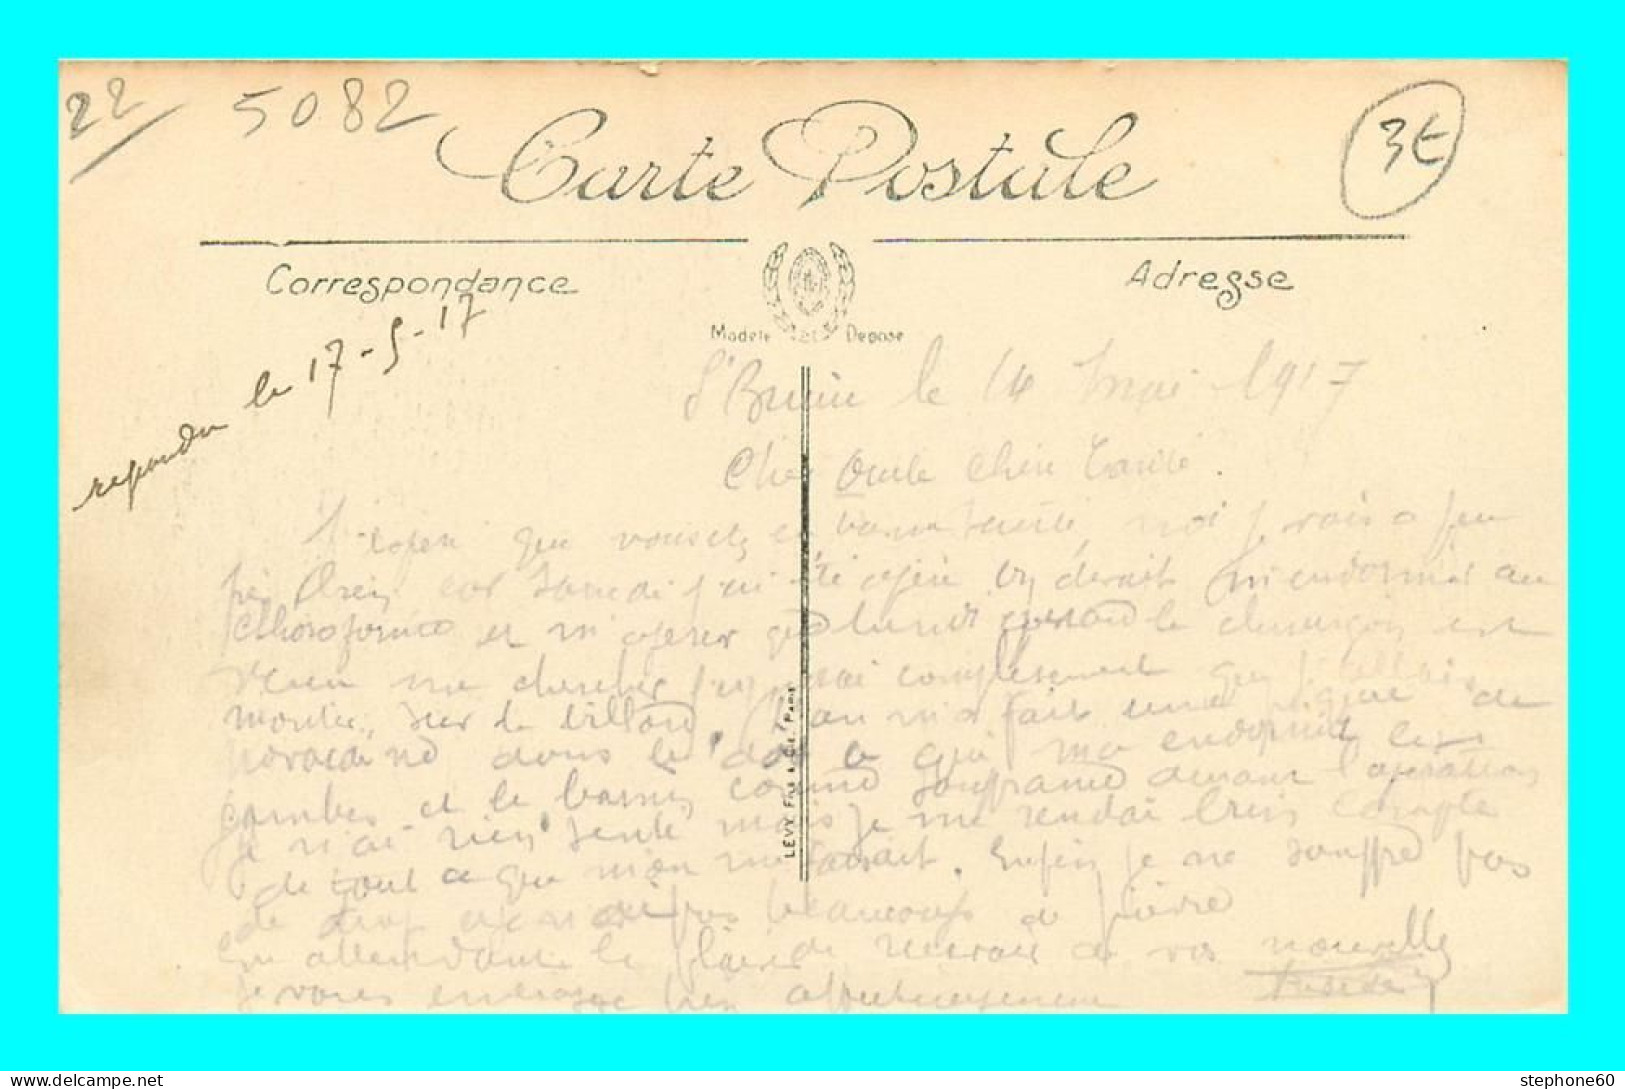 22 5082 3€
Carte Postale
Correspondance Adresse
Modèle Déposé
repondu le 17-5-17
St Brieuc le 14 Mai 1917
Cher Oncle Chère Tante
J'espère que vous êtes en bonne santé, moi je vais à peu
près bien car Samedi j'ai été opéré on devait m'endormir au
Chloroforme et m'opérer lundi quand le chirurgien est
venu me chercher complètement que j'allais
monter sur le billard, on m'a fait une piqûre de
novocaïne dans le dos ce qui me endormit les
jambes et le bassin comme souffrance durant l'opération
je n'ai rien senti mais je me rendai bien compte
de tout ce que l'on me faisait. Enfin je ne souffre pas
de trop et n'ai pas beaucoup de fièvre
En attendant le plaisir de recevoir de vos nouvelles
je vous embrasse bien affectueusement
LEVY FILS & CIE. PARIS
stephone60